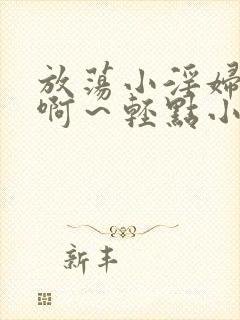 放蕩小淫婦
啊～輕點小
新丰